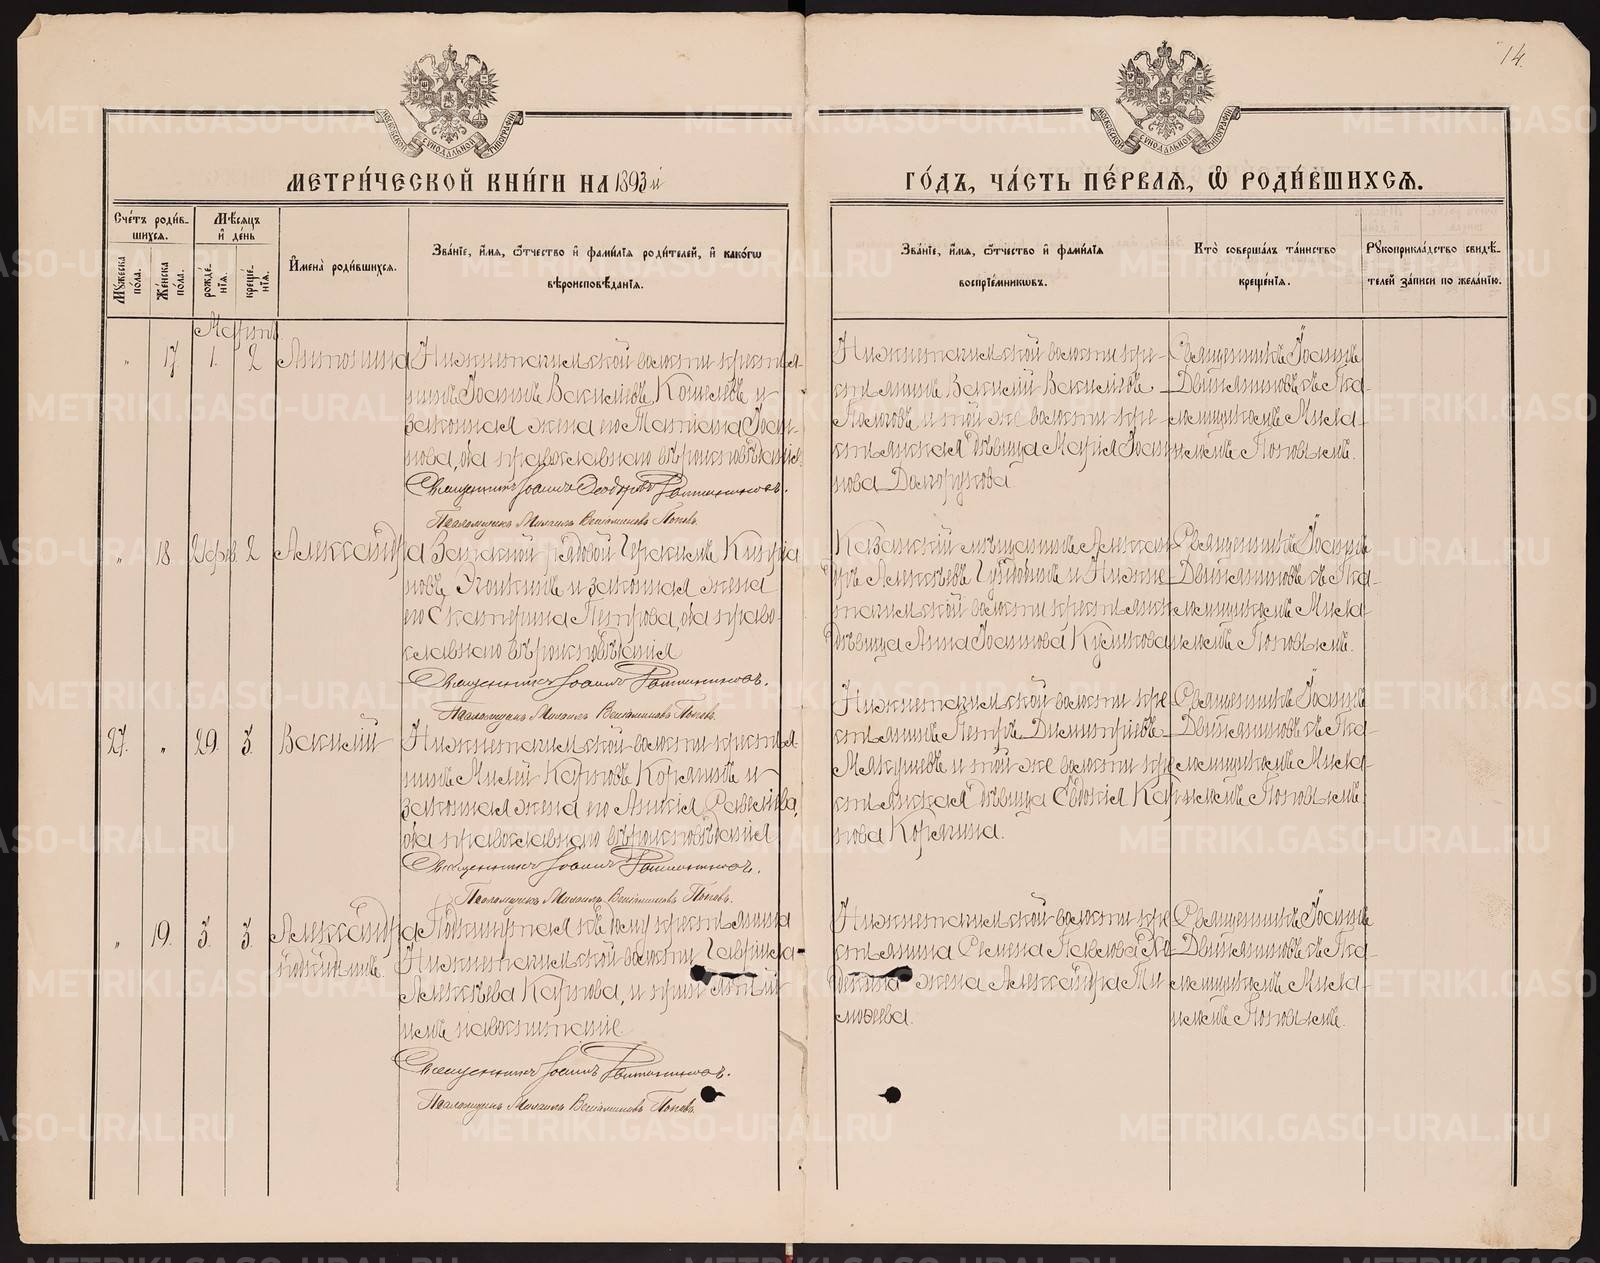 14.
МОСКОВСКОЙ СѴНОДАЛЬНОЙ ТИПОГРАФІИ
МОСКОВСКОЙ СѴНОДАЛЬНОЙ ТИПОГРАФІИ
МЕТРИ́ЧЕСКОЙ КНИ́ГИ НА 1893 й
ГО́ДЪ, ЧА́СТЬ ПЕ́РВАЯ, Ѡ РОДИ́ВШИХСЯ.
Сче́тъ роди́вшихся.
Мꙋ́жеска по́ла.
Же́нска по́ла.
Мѣ́сяцъ и҆ де́нь
рожде́нїя.
креще́нїя.
И҆мена̀ роди́вшихся.
Зва́нїе, и҆́мя, ѻ҆́тчество и҆ фами́лїя роди́телей, и҆ како́гѡ
вѣроисповѣ́данїя.
Зва́нїе, и҆́мя, ѻ҆́тчество и҆ фами́лїя
воспрїе́мникѡвъ.
Кто̀ соверша́лъ та́инство
креще́нїя.
Рꙋкоприкла́дство свидѣ́-
телей за́писи по жела́нїю.
Мартъ
" 17. 1. 2 Антонина
Нижнетагильской волости крестья-
нинъ Іоаннъ Васильевъ Кошелевъ и
законная жена его Татіана Іоан-
нова, оба православнаго вѣроисповѣданія.
Священникъ Іоаннъ
Псаломщикъ Михаилъ Веніаминовъ Поповъ.
Нижнетагильской волости кре-
стьянинъ Василій Васильевъ
и той же волости кре-
стьянская дѣвица Марія Іоан
нова Долгорукова
Священникъ Іоаннъ
съ Пса-
ломщикомъ Миха-
иломъ Поповымъ.
" 18. 2 Александра
Запасной рядовой Герасимъ Кипріа
новъ и законная жена
его Екатерина Петрова, оба право-
славнаго вѣроисповѣданія
Священникъ Іоаннъ
Псаломщикъ Михаилъ Веніаминовъ Поповъ.
Казанскій мѣщанинъ Алексан
дръ Алексѣевъ и Нижне-
тагильской волости крестьянск
дѣвица Анна Іоаннова Куликова
Священникъ Іоаннъ
съ Пса-
ломщикомъ Миха-
иломъ Поповымъ.
27. " 29. 3. Василій
Нижнетагильской волости крестья-
нинъ Карповъ Корягинъ и
законная жена его Савельева,
оба православнаго вѣроисповѣданія
Священникъ Іоаннъ
Псаломщикъ Михаилъ Веніаминовъ Поповъ.
Нижнетагильской волости кре
стьянинъ Петръ Димитріевъ
Мякишевъ и той же волости кре
стьянская дѣвица Евдокія Кар
пова Корягина.
Священникъ Іоаннъ
съ Пса-
ломщикомъ Миха-
иломъ Поповымъ.
" 19. 3. 3. Александра
подкидышъ.
Подкинутая къ дому крестьянина
Нижнетагильской волости Гавріила
Алексѣева Карпова, и принятый
имъ на воспитаніе
Священникъ Іоаннъ
Псаломщикъ Михаилъ Веніаминовъ Поповъ.
Нижнетагильской волости кре
стьянина Семена Павлова
жена Александра Ти
мофеева.
Священникъ Іоаннъ
съ Пса-
ломщикомъ Миха-
иломъ Поповымъ.
METRIKI.GASO-URAL.RU